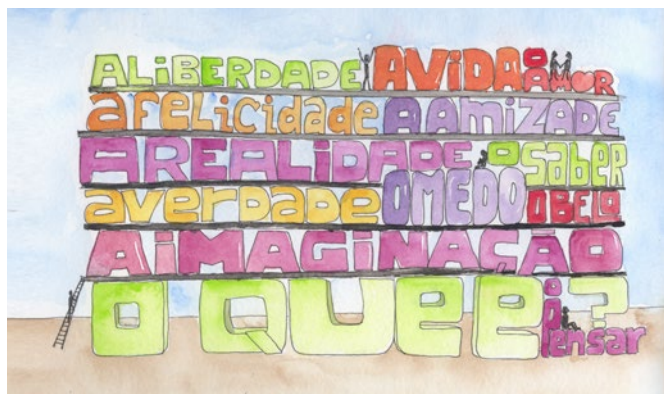 A LiBERDADE A ViDA O AMOR
a FELiCidade A AMiZADE
A REALiDADE O SABER
a verdade O MEDO O BELO
A iMAGiNAÇÃO
O QUE É O pensar ?